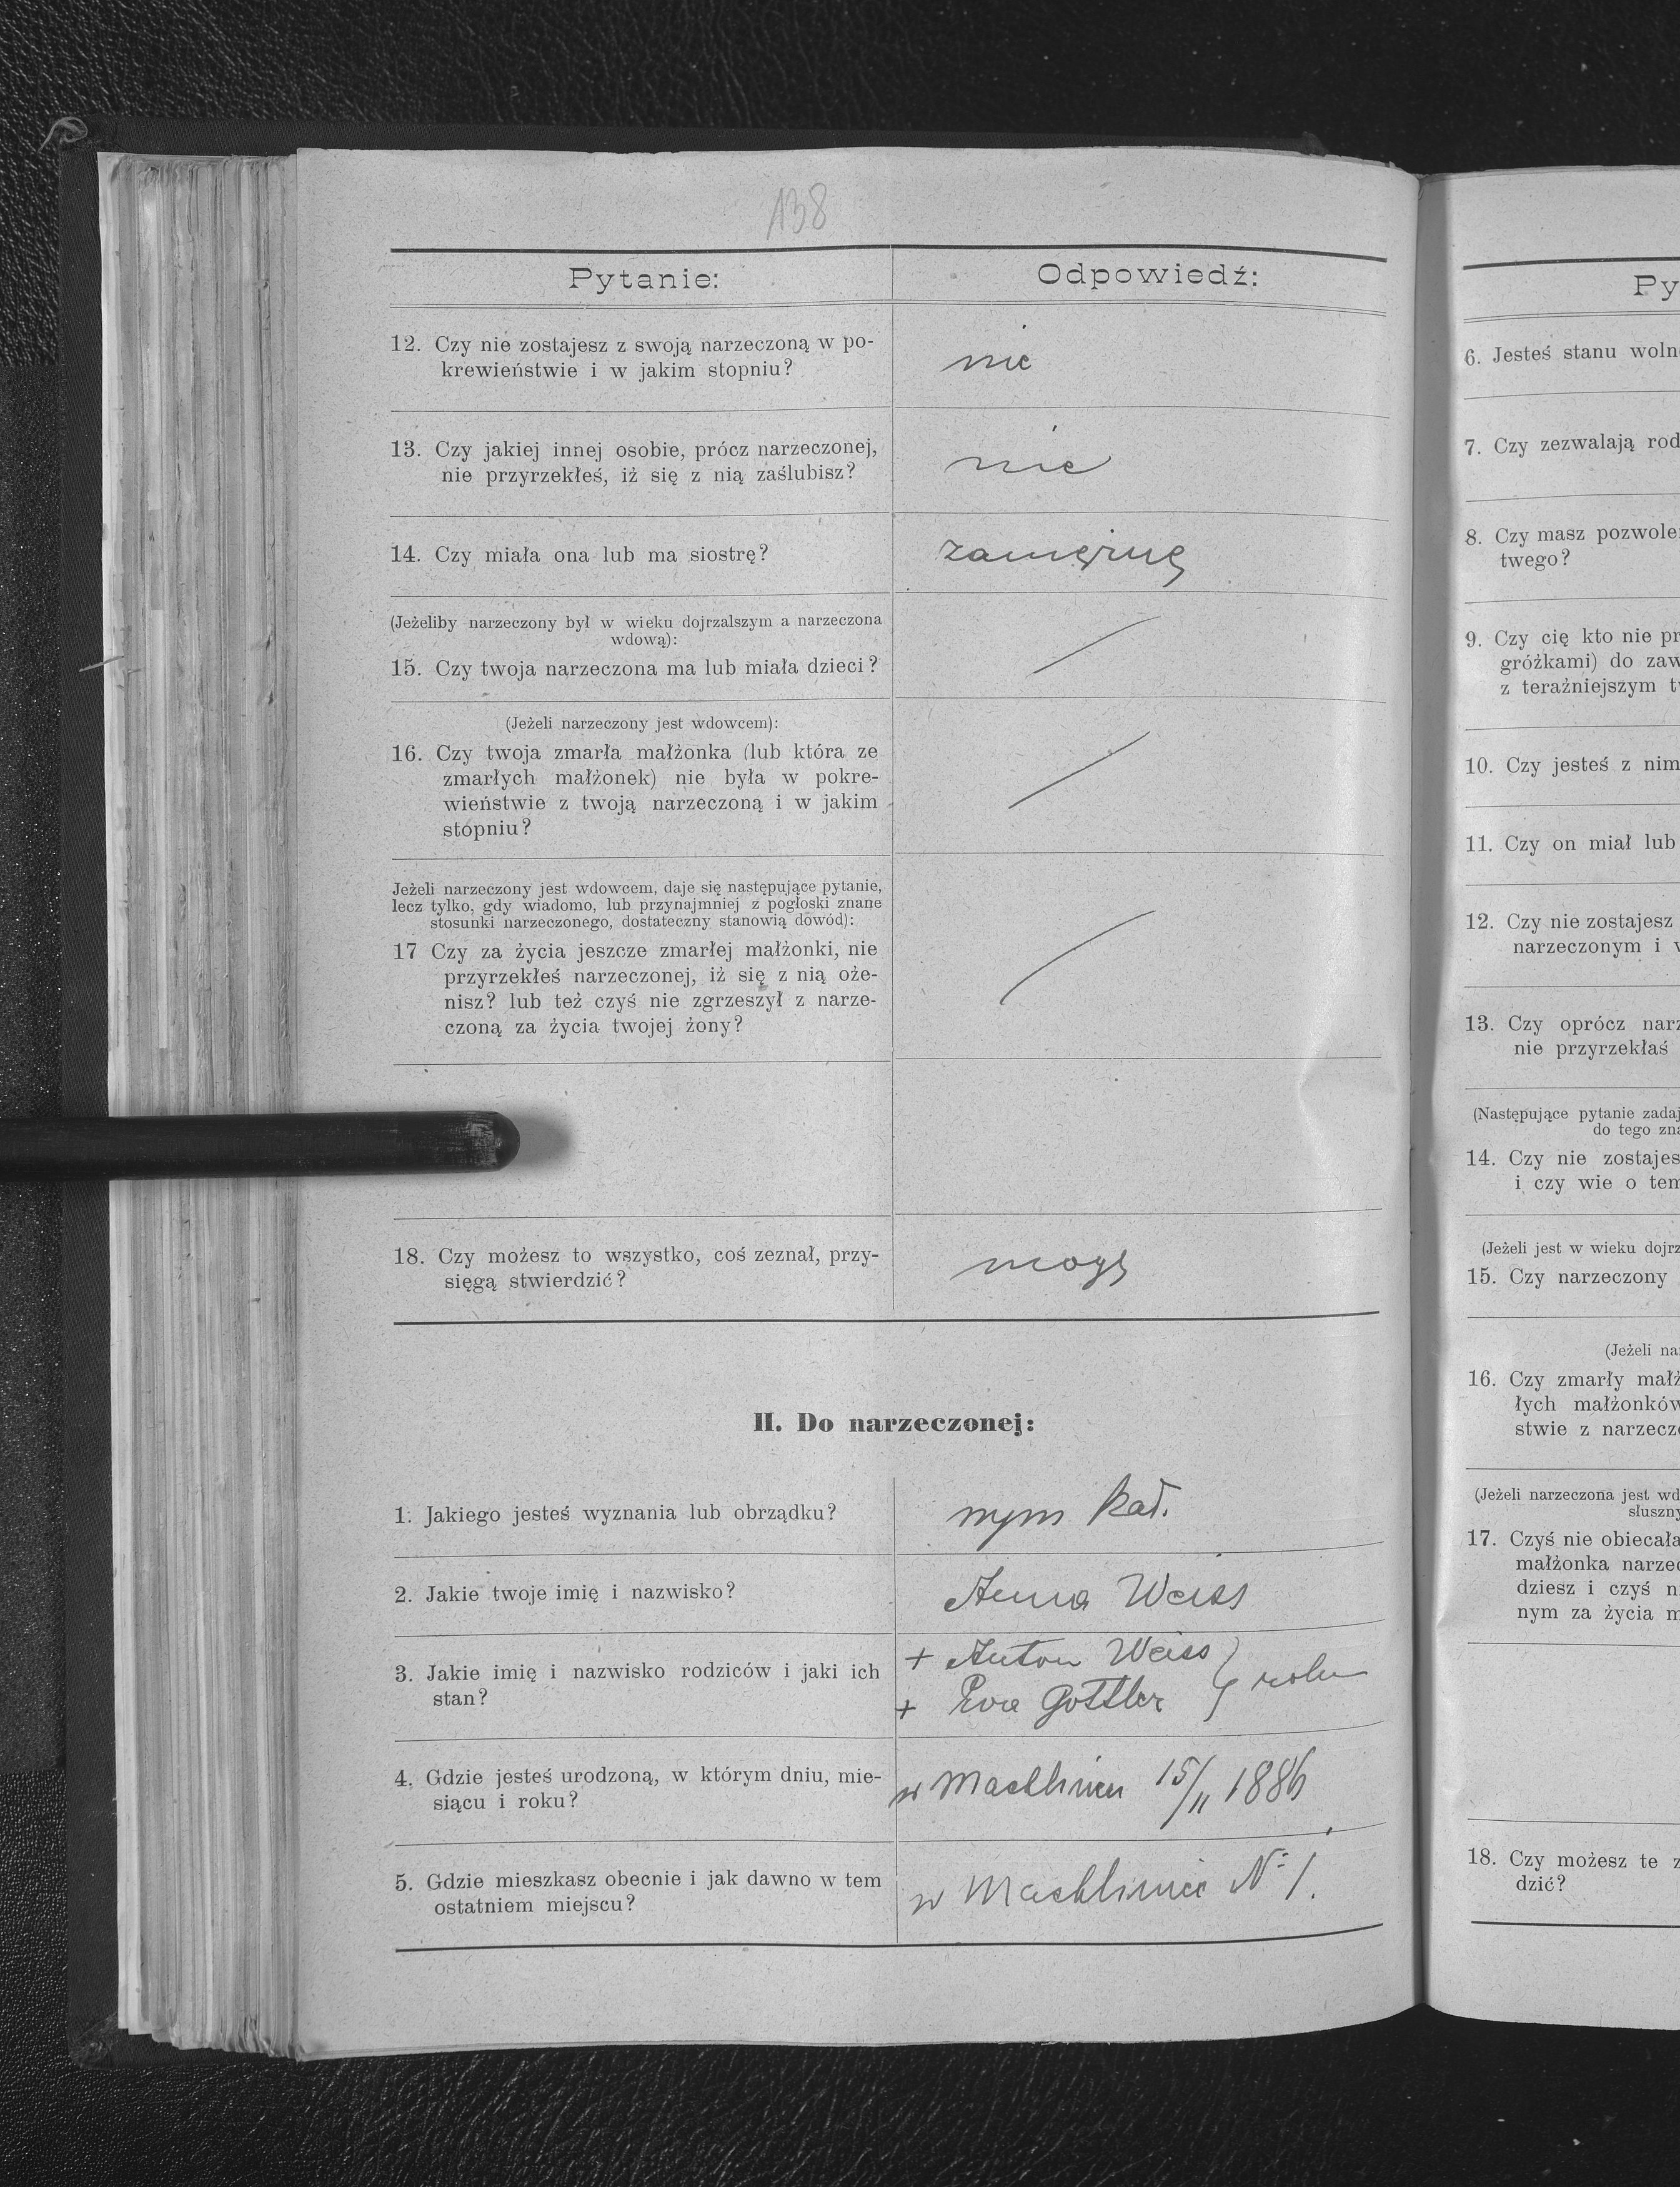 138
Pytanie:
Odpowiedź:
12. Czy nie zostajesz z swoją narzeczoną w po-
krewieństwie i w jakim stopniu?
nie
13. Czy jakiej innej osobie, prócz narzeczonej,
nie przyrzekłeś, iż się z nią zaślubisz?
nie
14. Czy miała ona lub ma siostrę?
zamężną
(Jeżeliby narzeczony był w wieku dojrzalszym a narzeczona
wdową):
15. Czy twoja narzeczona ma lub miała dzieci?
(Jeżeli narzeczony jest wdowcem):
16. Czy twoja zmarła małżonka (lub która ze
zmarłych małżonek) nie była w pokre-
wieństwie z twoją narzeczoną i w jakim
stopniu?
Jeżeli narzeczony jest wdowcem, daje się następujące pytanie,
lecz tylko, gdy wiadomo, lub przynajmniej z pogłoski znane
stosunki narzeczonego, dostateczny stanowią dowód):
17 Czy za życia jeszcze zmarłej małżonki, nie
przyrzekłeś narzeczonej, iż się z nią oże-
nisz? lub też czyś nie zgrzeszył z narze-
czoną za życia twojej żony?
18. Czy możesz to wszystko, coś zeznał, przy-
sięgą stwierdzić?
mogę
II. Do narzeczonej:
1. Jakiego jesteś wyznania lub obrządku?
rzym kat.
2. Jakie twoje imię i nazwisko?
Anna Weiss
3. Jakie imię i nazwisko rodziców i jaki ich
stan?
+ Anton Weiss
+ Eva Gottler
4. Gdzie jesteś urodzoną, w którym dniu, mie-
siącu i roku?
w 15/11 1886
5. Gdzie mieszkasz obecnie i jak dawno w tem
ostatniem miejscu?
w Machliniec N: 1.
Py
6. Jesteś stanu woln
7. Czy zezwalają rod
8. Czy masz pozwole
twego?
9. Czy cię kto nie pr
gróżkami) do zaw
z teraźniejszym t
10. Czy jesteś z nim
11. Czy on miał lub
12. Czy nie zostajesz
narzeczonym i
13. Czy oprócz narz
nie przyrzekłaś
(Następujące pytanie zadaj
do tego zna
14. Czy nie zostajes
i czy wie o tem
(Jeżeli jest w wieku dojrz
15. Czy narzeczony
(Jeżeli na
16. Czy zmarły małż
łych małżonków
stwie z narzecz
(Jeżeli narzeczona jest wd
słuszny
17. Czyś nie obiecała
małżonka narzec
dziesz i czyś n
nym za życia m
18. Czy możesz te z
dzić?